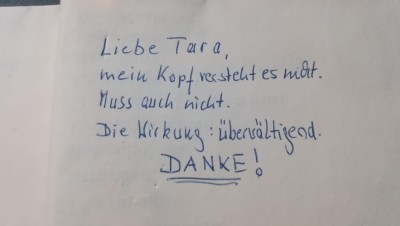 Liebe Tara,
mein Kopf versteht es nicht.
Muss auch nicht.
Die Wirkung: überwältigend.
DANKE!